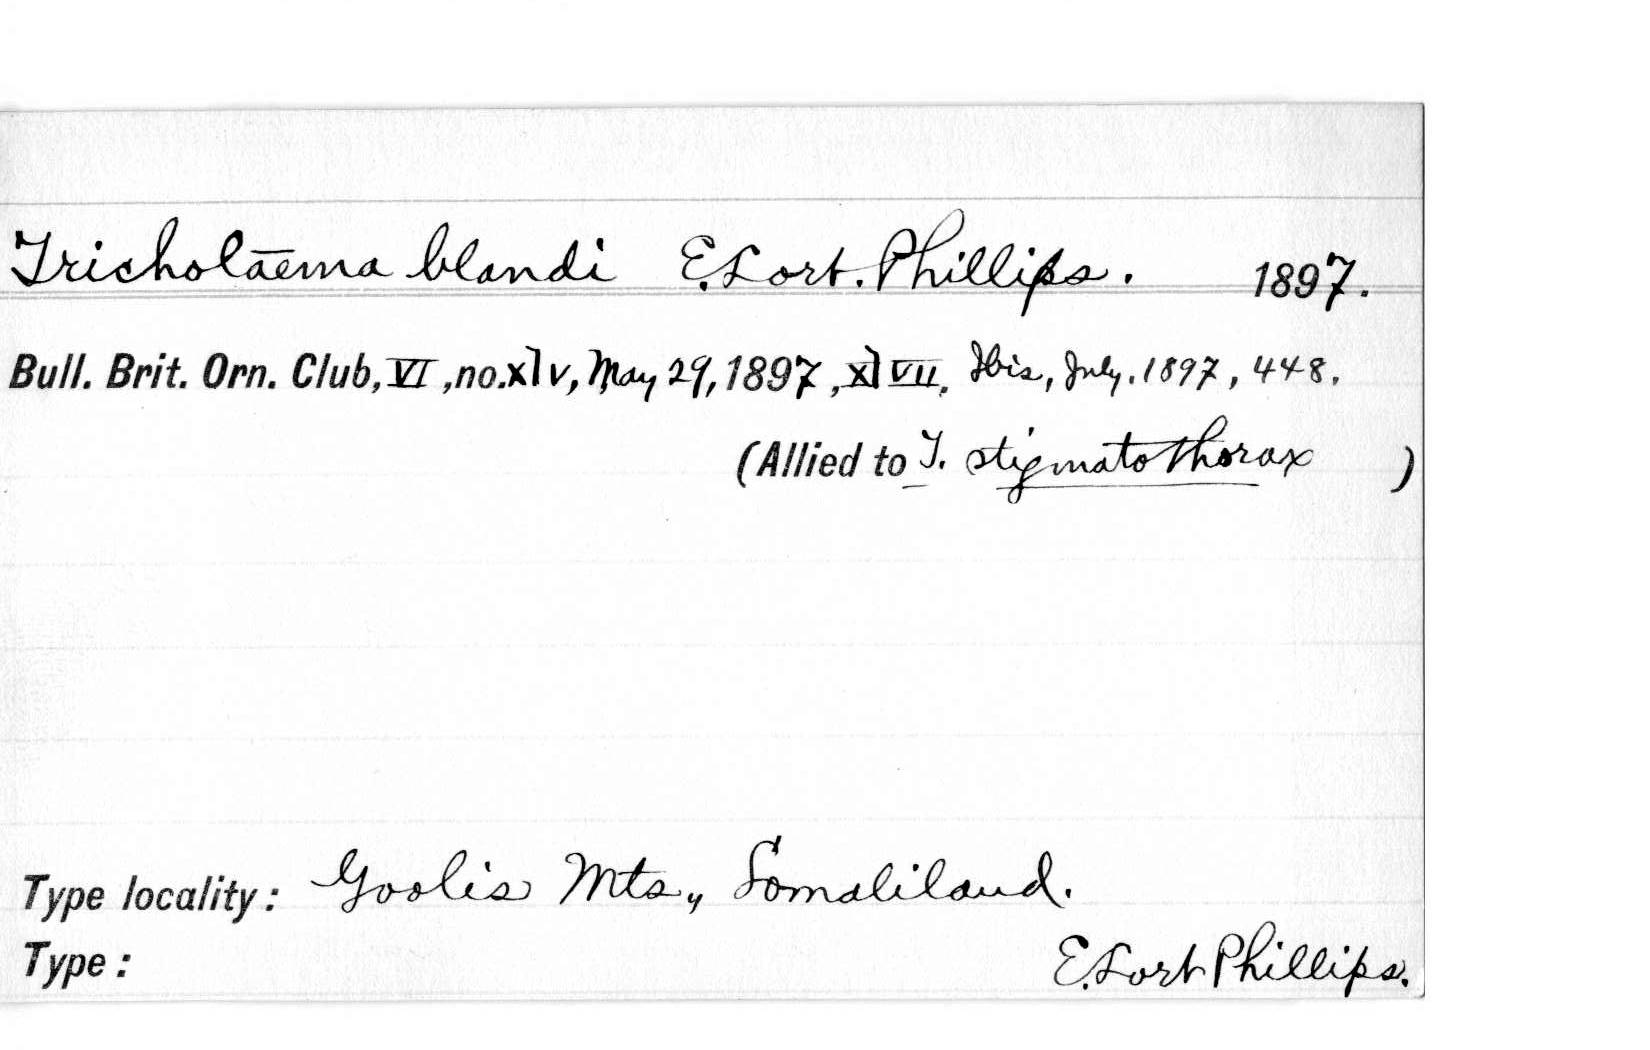 Tricholāema blandi E. Lort. Phillips. 1897.
Bull. Brit. Orn. Club, VI, no. xlv, May 29, 1897, xlvii. Ibis, July. 1897, 448.
(Allied to T. stigmatothorax )
Type locality: Goolis Mts., Somaliland.
Type: E. Lort Phillips.